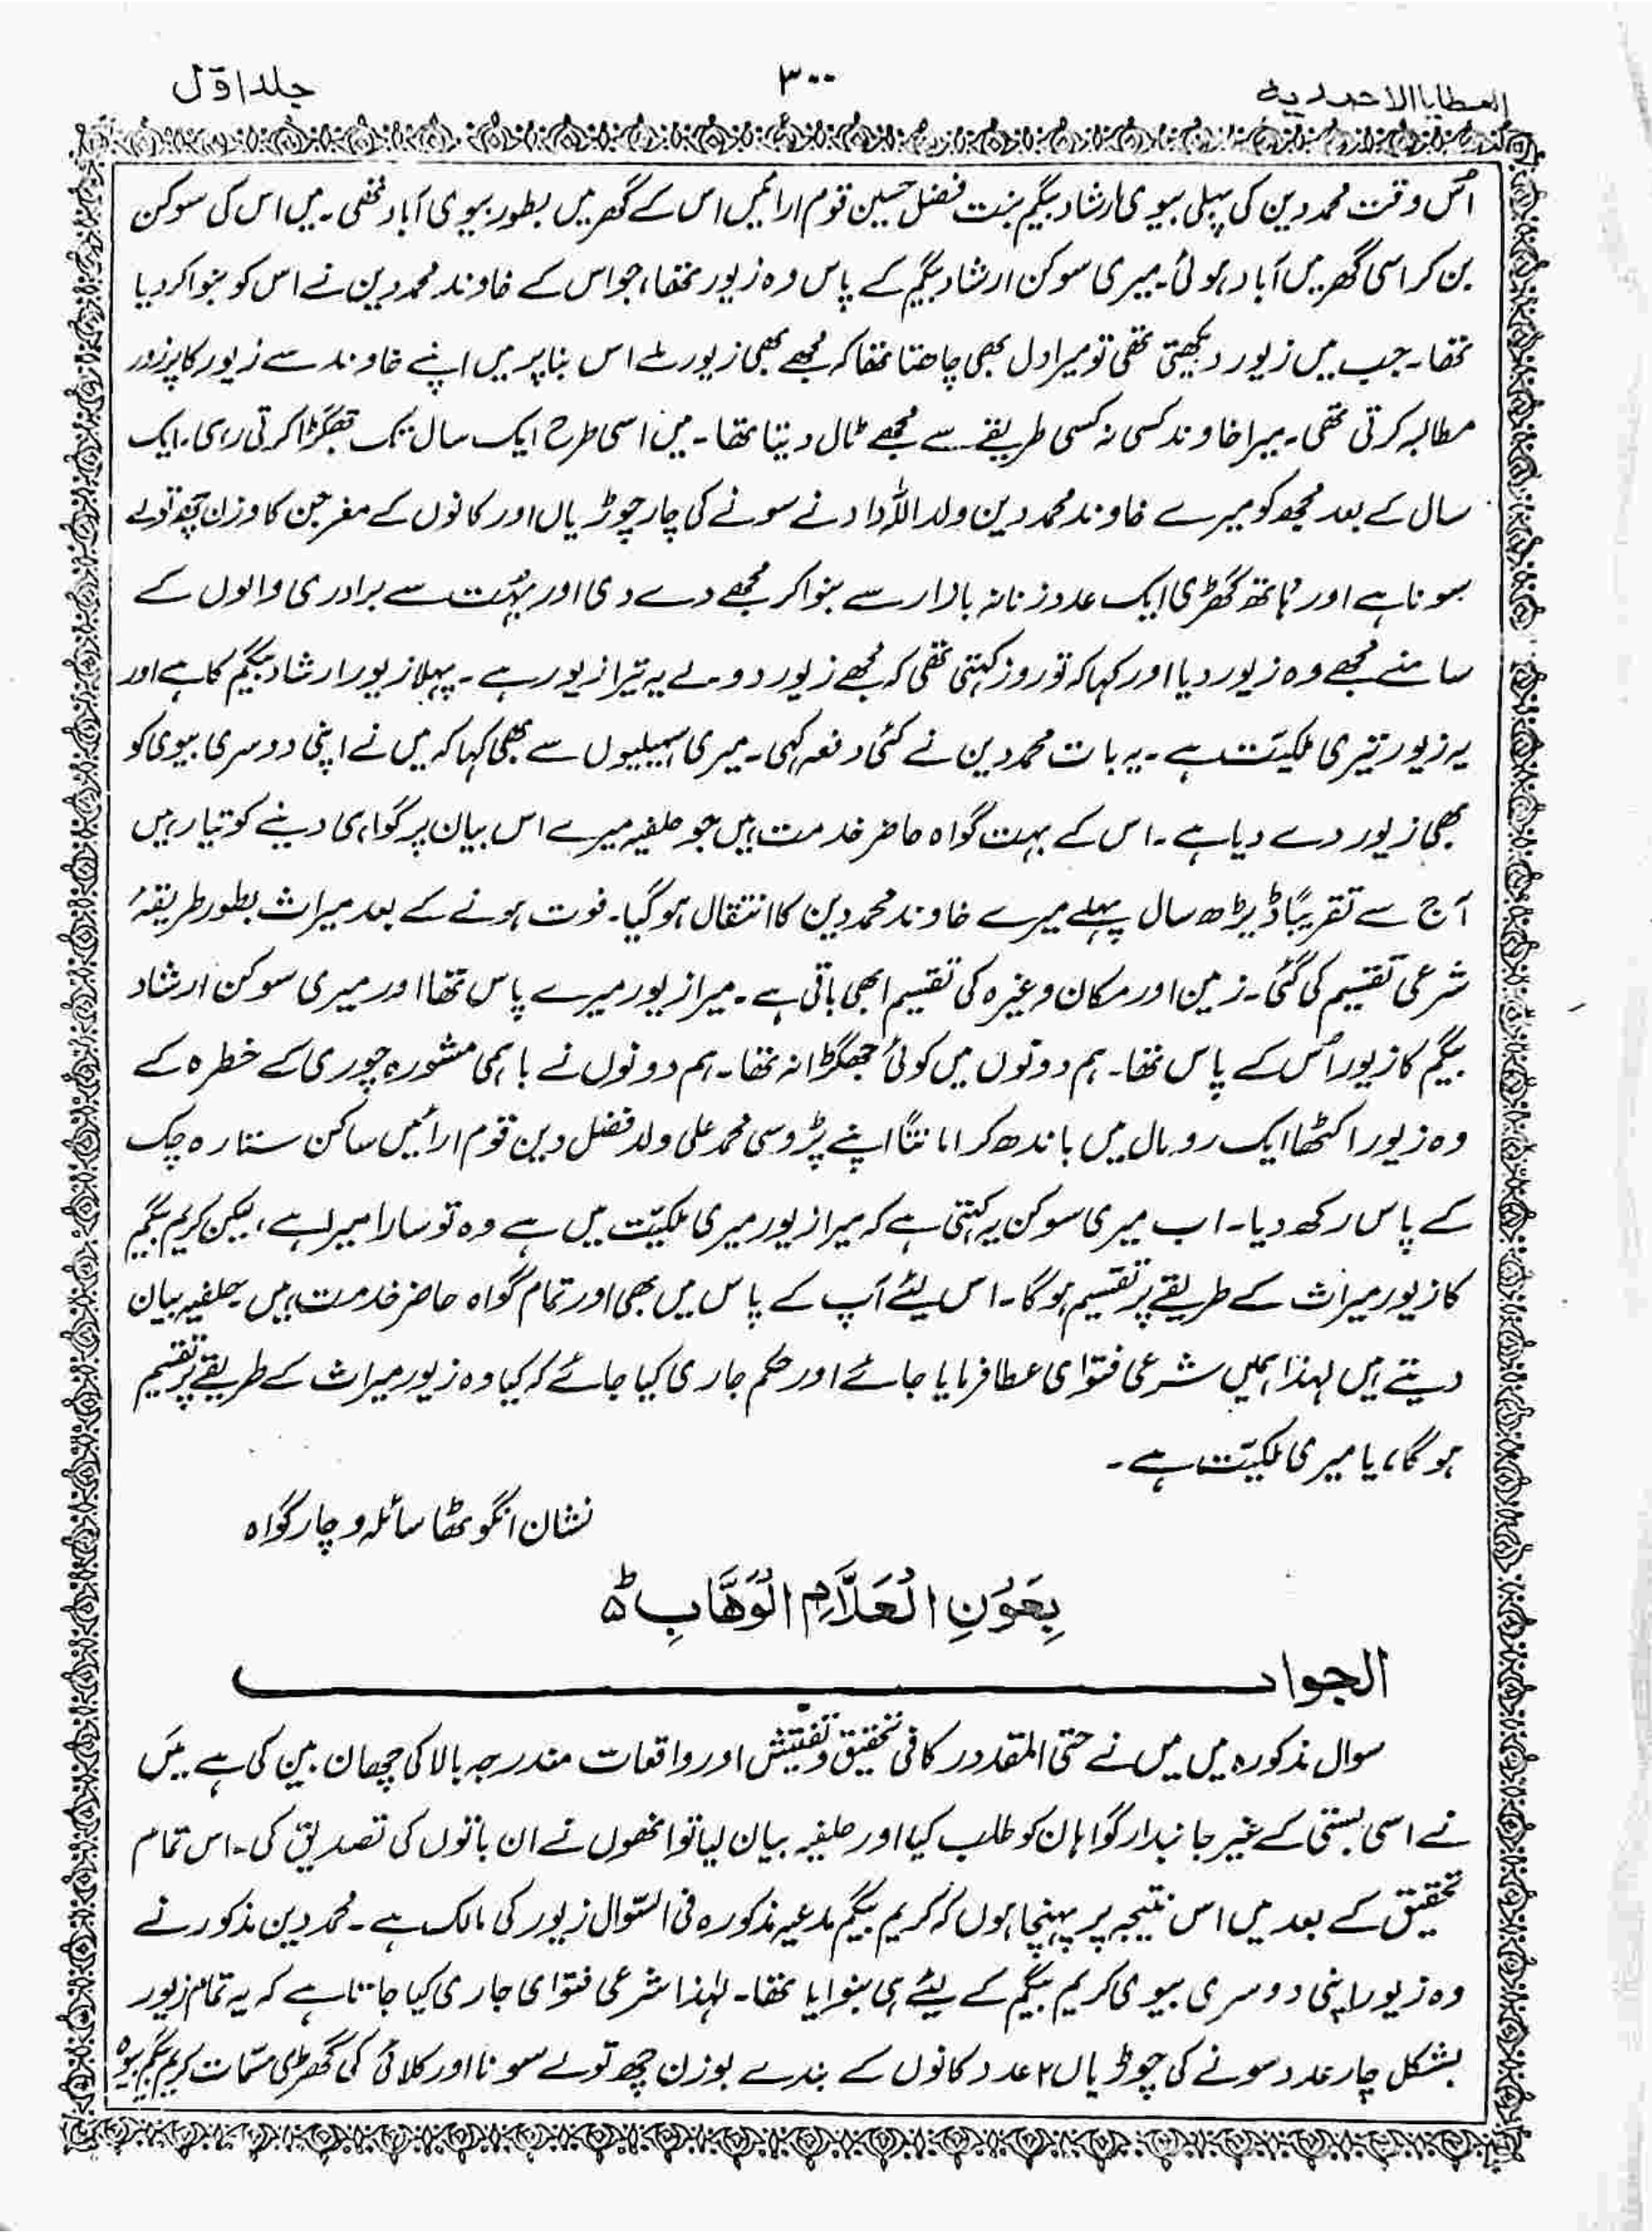 العطایا الاحمدیہ
۳۰۰
جلد اوّل
اُس وقت محمد دین کی پہلی بیوی ارشاد بیگم بنت فضل حسین قوم ارائیں اس کے گھر میں بطور بیوی آباد تھی۔ میں اس کی سوکن
بن کر اسی گھر میں آباد ہوئی۔ میری سوکن ارشاد بیگم کے پاس وہ زیور تھا، جو اس کے خاوند محمد دین نے اس کو بنوا کر دیا
تھا۔ جب میں زیور دیکھتی تھی تو میرا دل بھی چاھتا تھا کہ مجھے بھی زیور ملے اس بنا پر میں اپنے خاوند سے زیور کا پرزور
مطالبہ کرتی تھی۔ میرا خاوند کسی نہ کسی طریقے سے مجھے ٹال دیتا تھا۔ میں اسی طرح ایک سال تک جھگڑا کرتی رہی۔ ایک
سال کے بعد مجھ کو میرے خاوند محمد دین ولد اللہ داد نے سونے کی چار چوڑیاں اور کانوں کے مغر جن کا وزن چھ تولے
سونا ہے اور ہاتھ گھڑی ایک عدد زنانہ بازار سے بنوا کر مجھے دے دی اور بہُت سے برادری والوں کے
سامنے مجھے وہ زیور دیا اور کہا کہ تو روز کہتی تھی کہ مجھے زیور دو۔ لے یہ تیرا زیور ہے۔ پہلا زیور ارشاد بیگم کا ہے اور
یہ زیور تیری ملکیّت ہے۔ یہ بات محمد دین نے کئی دفعہ کہی۔ میری سہیلیوں سے بھی کہا کہ میں نے اپنی دوسری بیوی کو
بھی زیور دے دیا ہے۔ اس کے بہت گواہ حاضر خدمت ہیں جو حلفیہ میرے اس بیان پر گواہی دینے کو تیار ہیں
آج سے تقریبًا ڈیڑھ سال پہلے میرے خاوند محمد دین کا انتقال ہو گیا۔ فوت ہونے کے بعد میراث بطور طریقۂ
شرعی تقسیم کی گئی۔ زمین اور مکان وغیرہ کی تقسیم ابھی باقی ہے۔ میرا زیور میرے پاس تھا اور میری سوکن ارشاد
بیگم کا زیور اُس کے پاس تھا۔ ہم دونوں میں کوئی جھگڑا نہ تھا۔ ہم دونوں نے باہمی مشورہ چوری کے خطرہ کے
وہ زیور اکٹھا ایک رومال میں باندھ کر امانتًا اپنے پڑوسی محمد علی ولد فضل دین قوم ارائیں ساکن ستارہ چک
کے پاس رکھ دیا۔ اب میری سوکن یہ کہتی ہے کہ میرا زیور میری ملکیّت میں ہے وہ تو سارا میرا ہے، لیکن کریم بیگم
کا زیور میراث کے طریقے پر تقسیم ہو گا۔ اس لیئے آپ کے پاس میں بھی اور تمام گواہ حاضر خدمت ہیں۔ حلفیہ بیان
دیتے ہیں لہذا ہمیں شرعی فتوٰی عطا فرمایا جائے اور حکم جاری کیا جائے کہ کیا وہ زیور میراث کے طریقے پر تقسیم
ہو گا، یا میری ملکیّت ہے۔
نشان انگوٹھا سائلہ و چار گواہ
بِعَوْنِ الْعَلَّامِ الْوَهَّابِ ط ۵
الجواب
سوال مذکورہ میں میں نے حتی المقدور کافی تحقیق و تفتیش اور واقعات مندرجہ بالا کی چھان بین کی ہے میں
نے اسی بستی کے غیر جانبدار گواہان کو طلب کیا اور حلفیہ بیان لیا تو انھوں نے ان باتوں کی تصدیق کی۔ اس تمام
تحقیق کے بعد میں اس نتیجہ پر پہنچا ہوں کہ کریم بیگم مدعیہ مذکورہ فی السّوال زیور کی مالک ہے۔ محمد دین مذکور نے
وہ زیور اپنی دوسری بیوی کریم بیگم کے لیئے ہی بنوایا تھا۔ لہٰذا شرعی فتوٰی جاری کیا جاتا ہے کہ یہ تمام زیور
بشکل چار عدد سونے کی چوڑیاں ۲ عدد کانوں کے بندے بوزن چھ تولے سونا اور کلائی کی گھڑی مسّمات کریم بیگم بیوہ